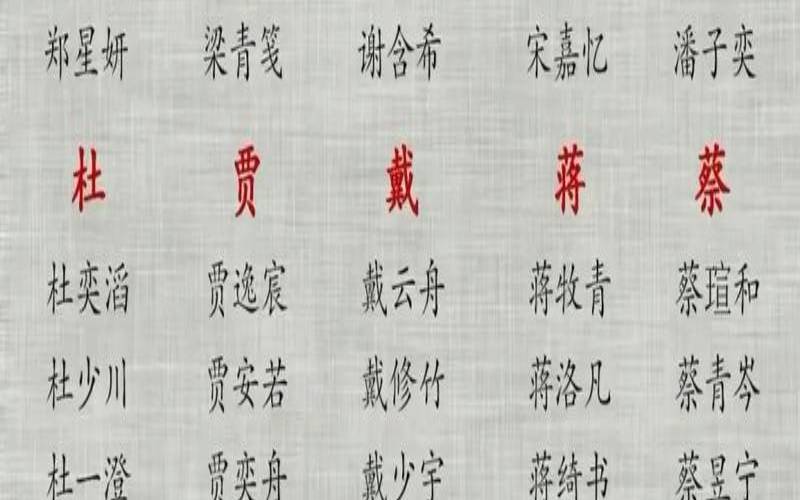 郑星妍 梁青笺 谢含希 宋嘉忆 潘子奕
杜 贾 戴 蒋 蔡
杜奕滔 贾逸宸 戴云舟 蒋牧青 蔡瑄和
杜少川 贾安若 戴修竹 蒋洛凡 蔡青岑
杜一澄 贾奕舟 戴少宇 蒋绮书 蔡昱宁